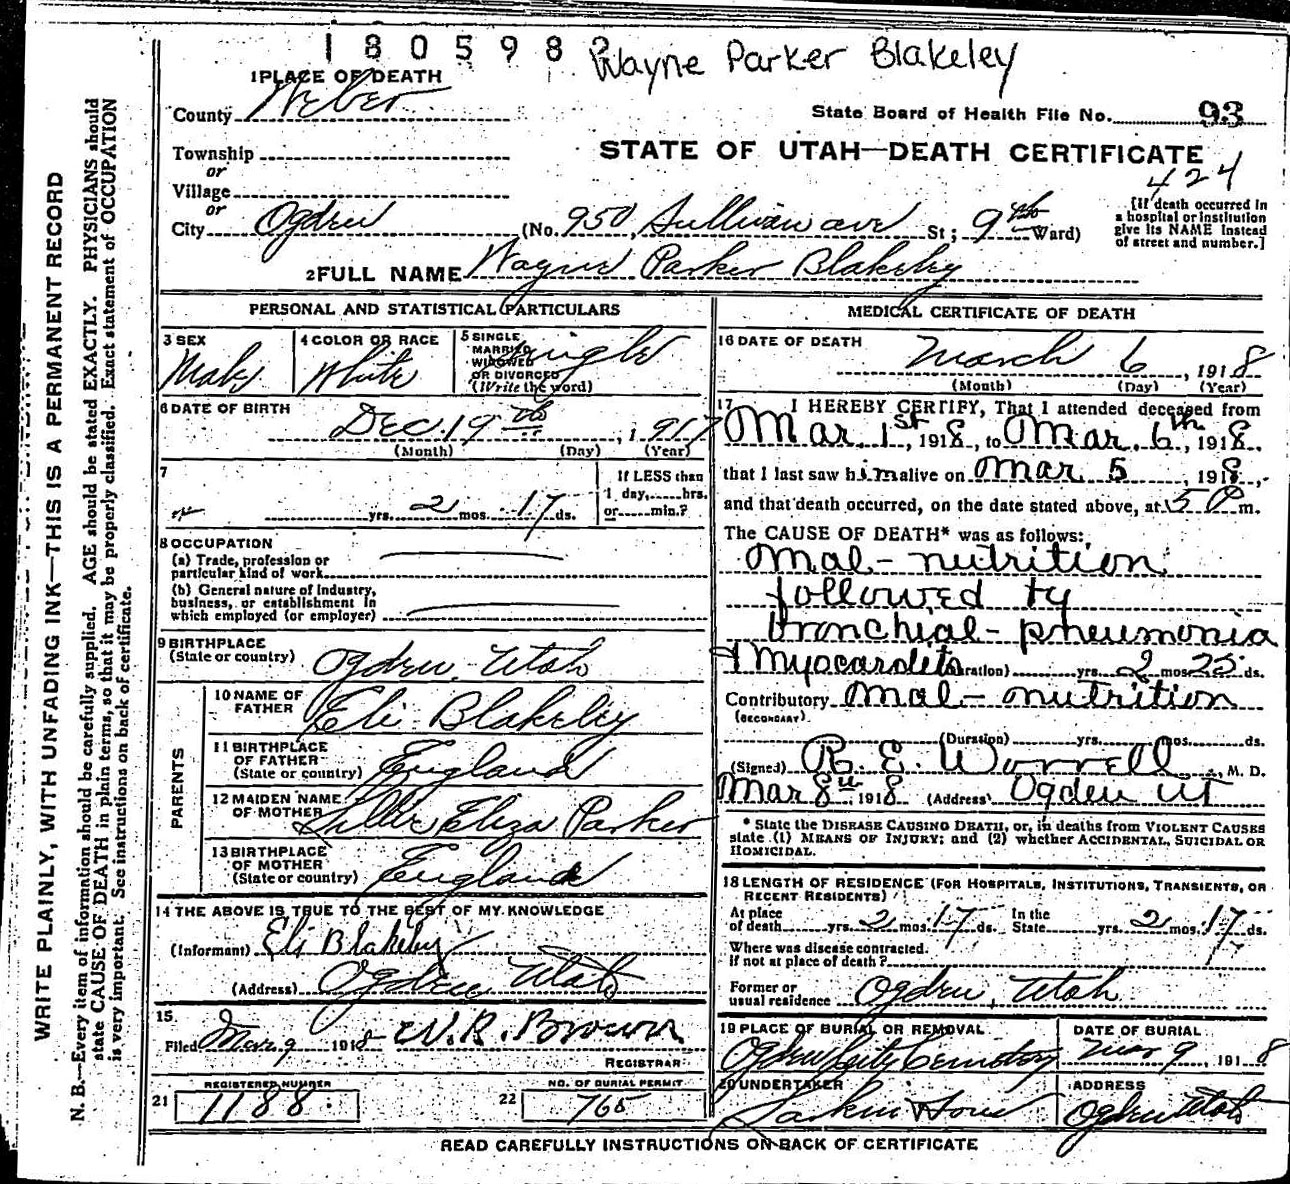 1805982 Wayne Parker Blakeley
1 PLACE OF DEATH
County Weber
State Board of Health File No. 93
Township
STATE OF UTAH—DEATH CERTIFICATE
or
424
Village
or
City Ogden (No. 950 Sullivan ave St; 9th Ward)
[If death occurred in
a hospital or institution
give its NAME instead
of street and number.]
2 FULL NAME Wayne Parker Blakeley
PERSONAL AND STATISTICAL PARTICULARS
3 SEX
Male
4 COLOR OR RACE
White
5 SINGLE
MARRIED
WIDOWED
OR DIVORCED
(Write the word)
Single
6 DATE OF BIRTH
Dec. 19th, 1917
(Month) (Day) (Year)
7
yrs. 2 mos. 17 ds.
If LESS than
1 day,......hrs.
or......min.?
8 OCCUPATION
(a) Trade, profession or
particular kind of work
(b) General nature of industry,
business, or establishment in
which employed (or employer)
9 BIRTHPLACE
(State or country) Ogden, Utah
PARENTS
10 NAME OF
FATHER Eli Blakeley
11 BIRTHPLACE
OF FATHER
(State or country) England
12 MAIDEN NAME
OF MOTHER Lillie Eliza Parker
13 BIRTHPLACE
OF MOTHER
(State or country) England
14 THE ABOVE IS TRUE TO THE BEST OF MY KNOWLEDGE
(Informant) Eli Blakeley
(Address) Ogden Utah
15
Filed Mar 9 1918 W. R. Brown
REGISTRAR
REGISTERED NUMBER
21 1188
NO. OF BURIAL PERMIT
22 765
MEDICAL CERTIFICATE OF DEATH
16 DATE OF DEATH
March 6, 1918
(Month) (Day) (Year)
17 I HEREBY CERTIFY, That I attended deceased from
Mar. 1st, 1918, to Mar. 6th, 1918,
that I last saw him alive on Mar 5, 1918,
and that death occurred, on the date stated above, at 5 P m.
The CAUSE OF DEATH* was as follows:
Mal-nutrition
followed by
bronchial-pneumonia
& Myocarditis (Duration) yrs. 2 mos. 25 ds.
Contributory Mal-nutrition
(SECONDARY)
(Duration) yrs. mos. ds.
(Signed) R. E. Worrell, M. D.
Mar 8th 1918 (Address) Ogden UT
* State the DISEASE CAUSING DEATH, or, in deaths from VIOLENT CAUSES
state (1) MEANS OF INJURY; and (2) whether ACCIDENTAL, SUICIDAL OR
HOMICIDAL.
18 LENGTH OF RESIDENCE (FOR HOSPITALS, INSTITUTIONS, TRANSIENTS, OR
RECENT RESIDENTS)
At place
of death yrs. 2 mos. 17 ds.
In the
State yrs. 2 mos. 17 ds.
Where was disease contracted.
if not at place of death?
Former or
usual residence Ogden, Utah
19 PLACE OF BURIAL OR REMOVAL
Ogden City Cemetery
DATE OF BURIAL
Mar 9, 1918
20 UNDERTAKER
Larkin & Sons
ADDRESS
Ogden Utah
READ CAREFULLY INSTRUCTIONS ON BACK OF CERTIFICATE
WRITE PLAINLY, WITH UNFADING INK—THIS IS A PERMANENT RECORD
N. B.—Every item of information should be carefully supplied. AGE should be stated EXACTLY. PHYSICIANS should
state CAUSE OF DEATH in plain terms, so that it may be properly classified. Exact statement of OCCUPATION
is very important. See instructions on back of certificate.